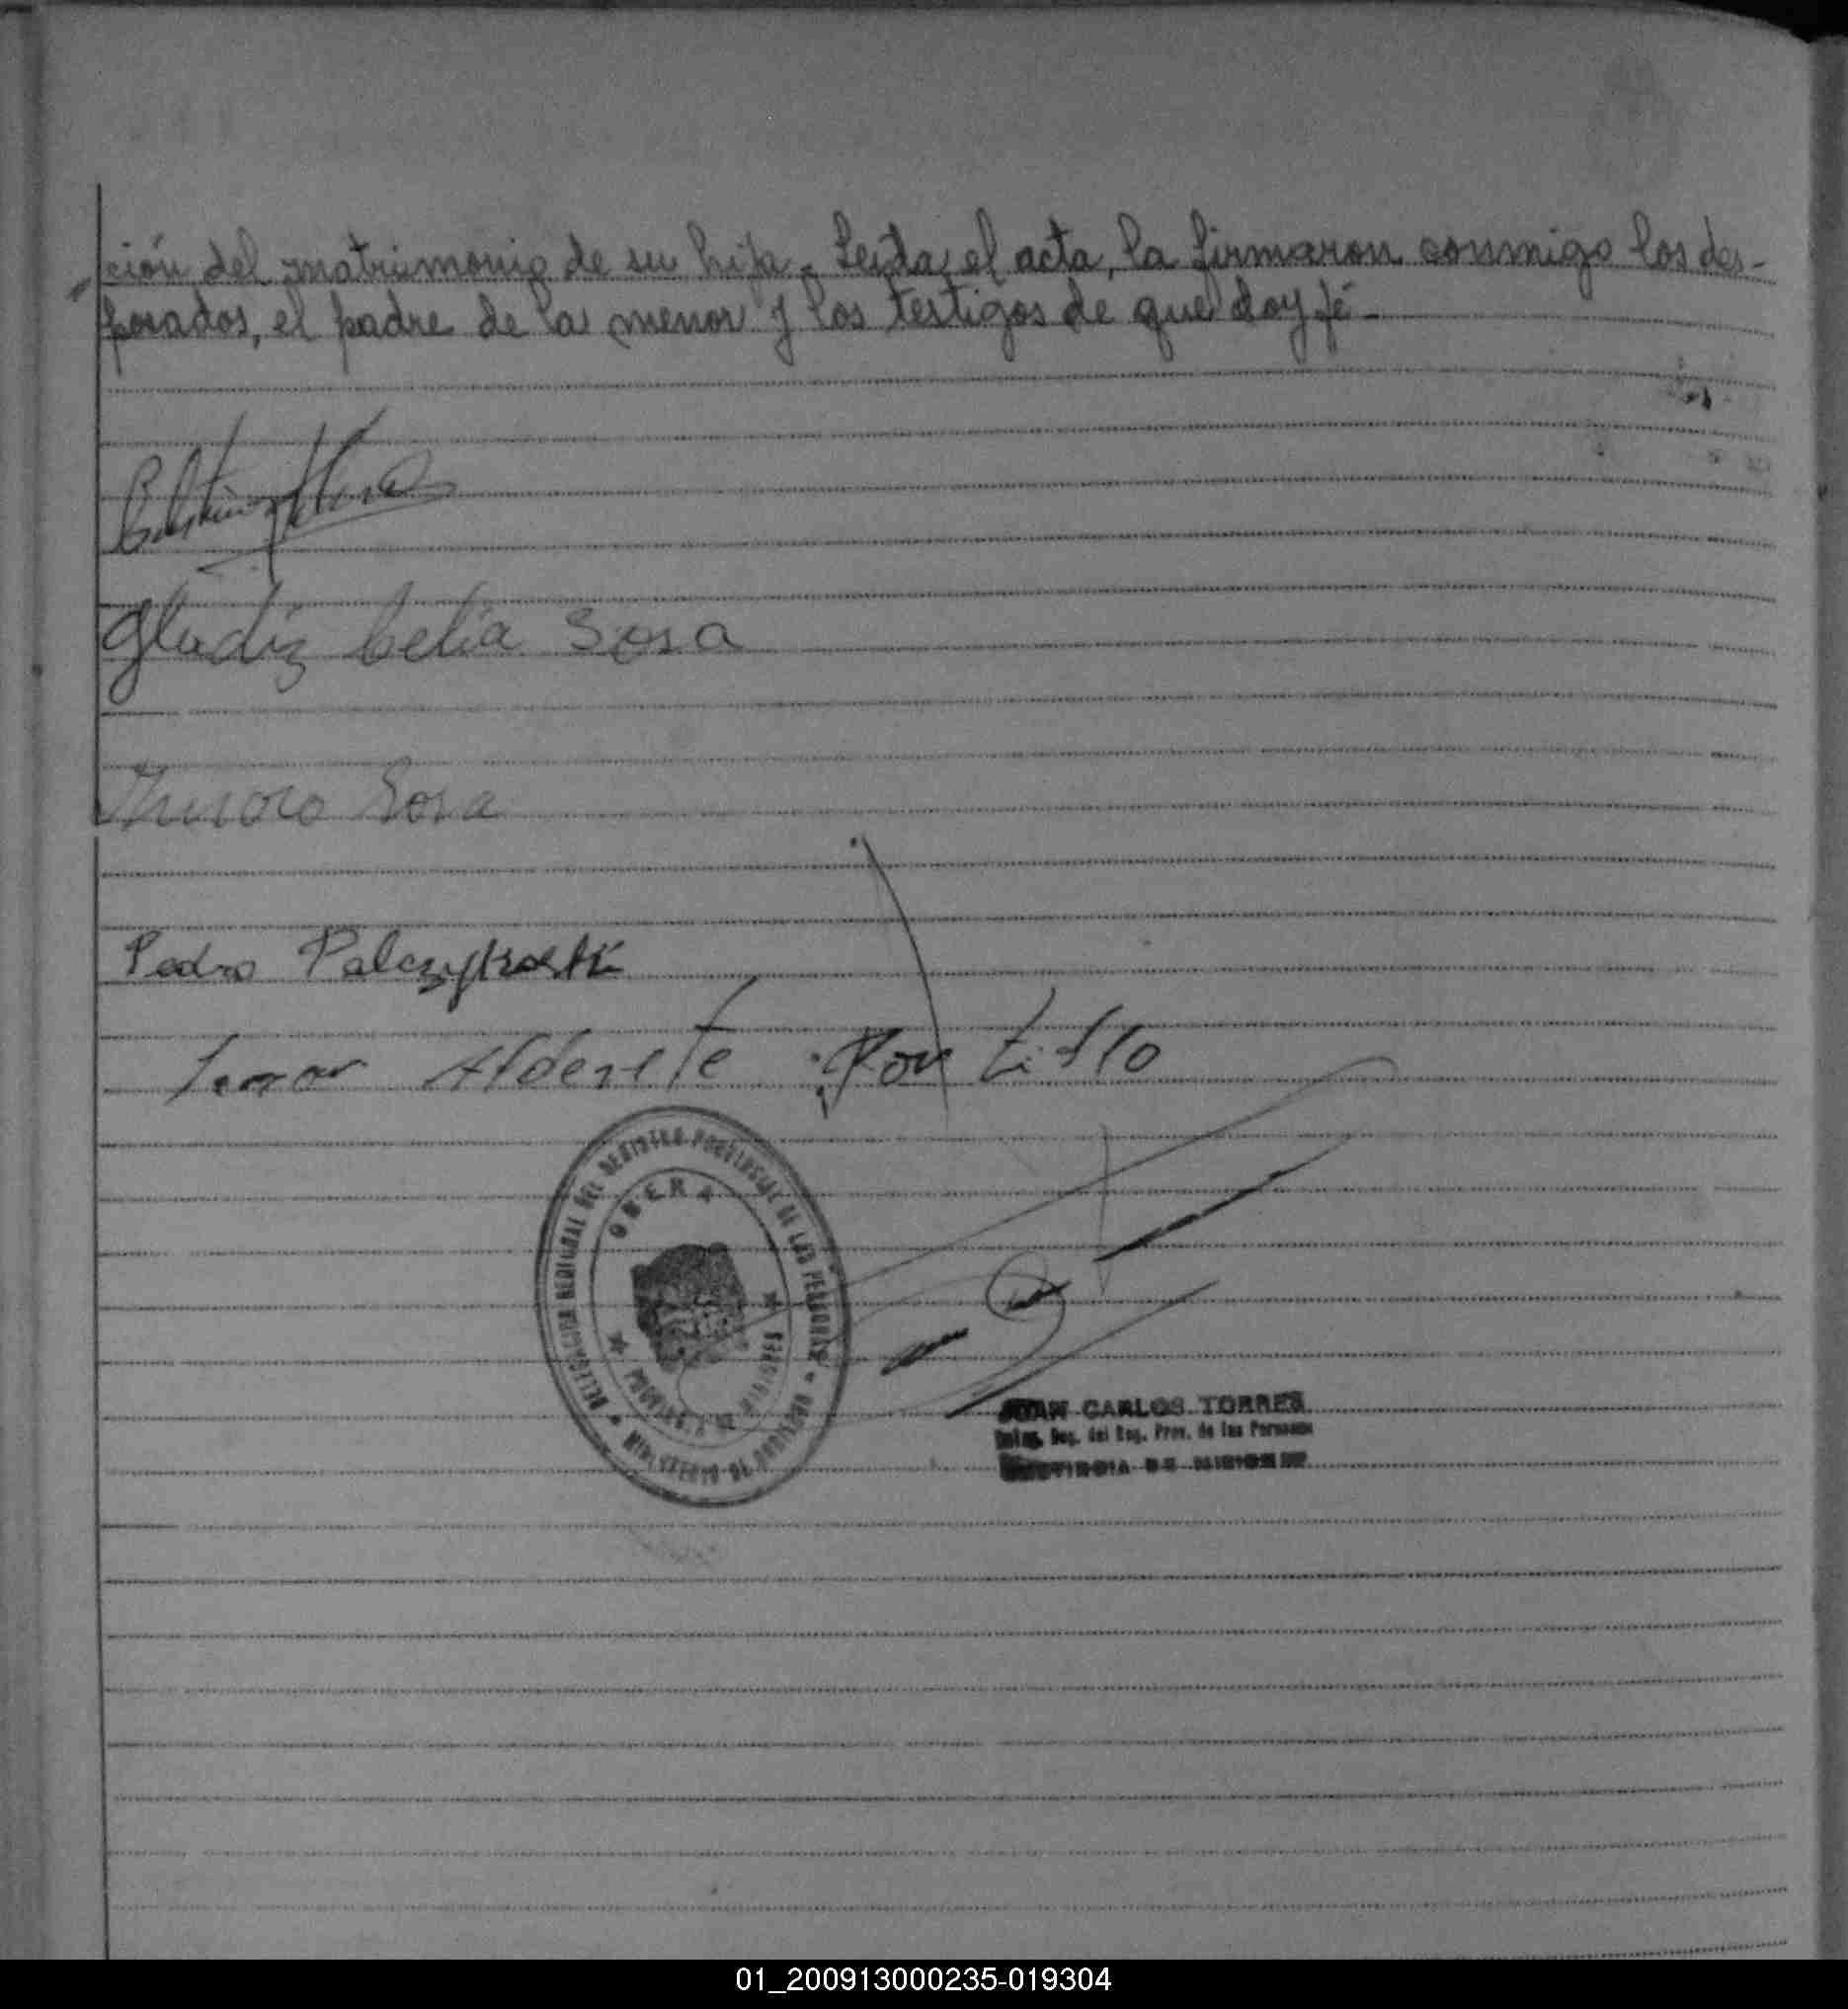 ción del matrimonio de su hija.- Leida el acta, la firmaron conmigo los des-
posados, el padre de la menor y los testigos de que doy fé.-
Gladiz Celia Sosa
Sosa
Pedro
Portillo
DELEGACION REGIONAL DEL REGISTRO PROVINCIAL DE LAS PERSONAS
OBERA
PROVINCIA DE MISIONES
JUAN CARLOS TORRES
Deleg. Reg. del Reg. Prov. de las Personas
PROVINCIA DE MISIONES
01_200913000235-019304